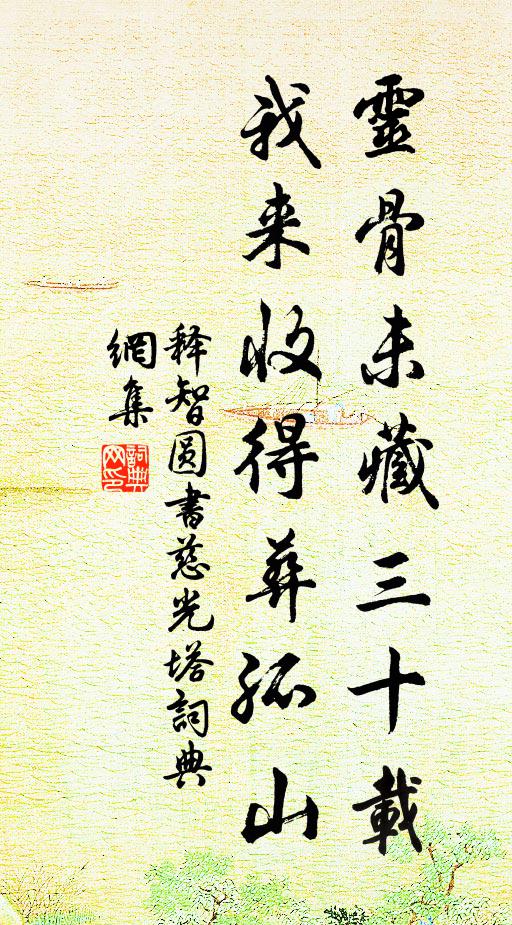 靈骨未藏三十載
我来收得葬孤山
释智圆書慈光塔詞典
網集
詞典网印